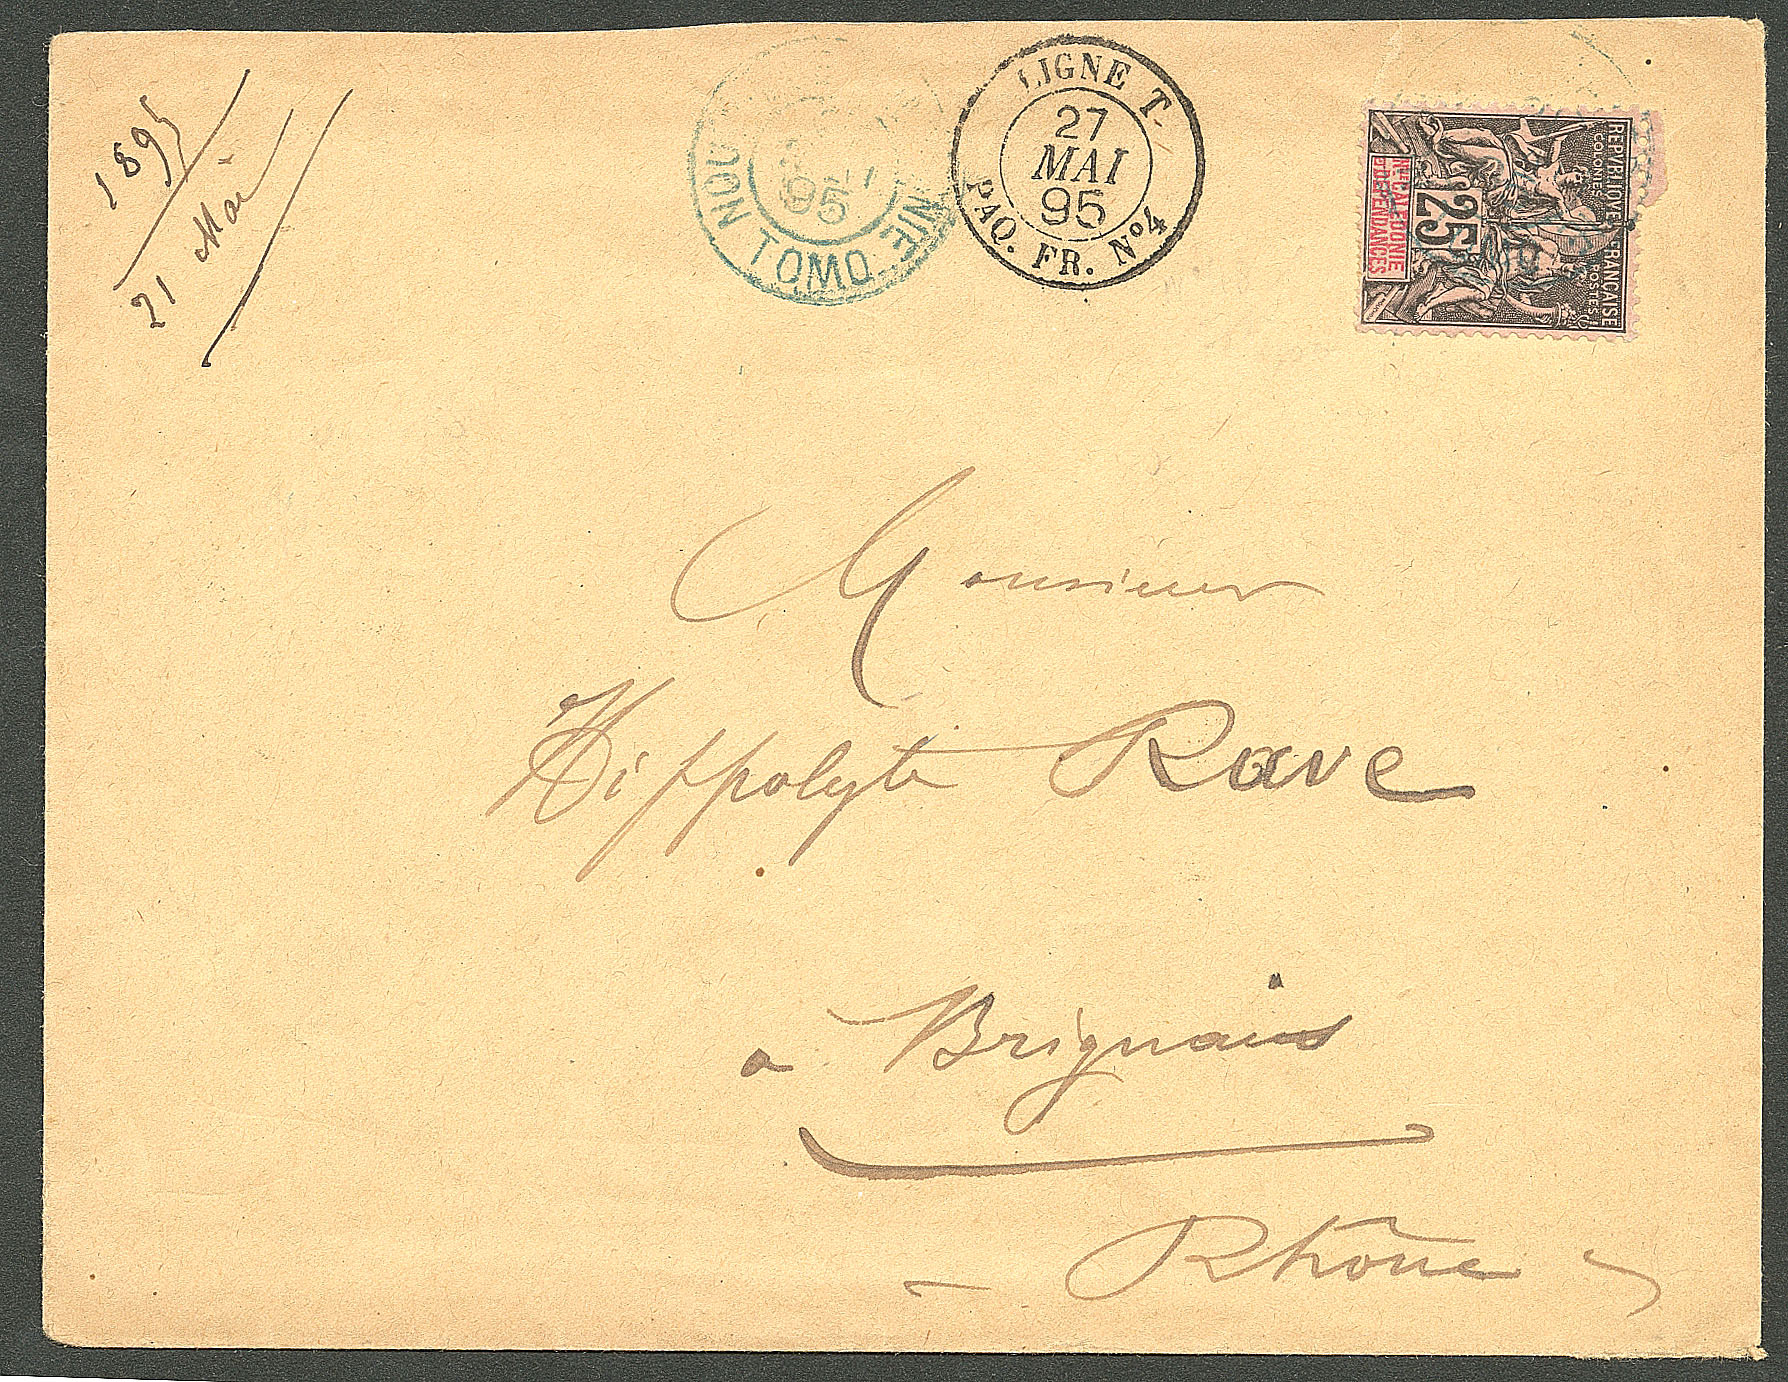 1895
21 Mai
TOMO
95
LIGNE T.
27
MAI
95
PAQ. FR. Nº4
REPVBLIQVE FRANCAISE
COLONIES POSTES
25
Nlle CALEDONIE
et DEPENDANCES
Monsieur
Hippolyte Rave
a Brignais
Rhône